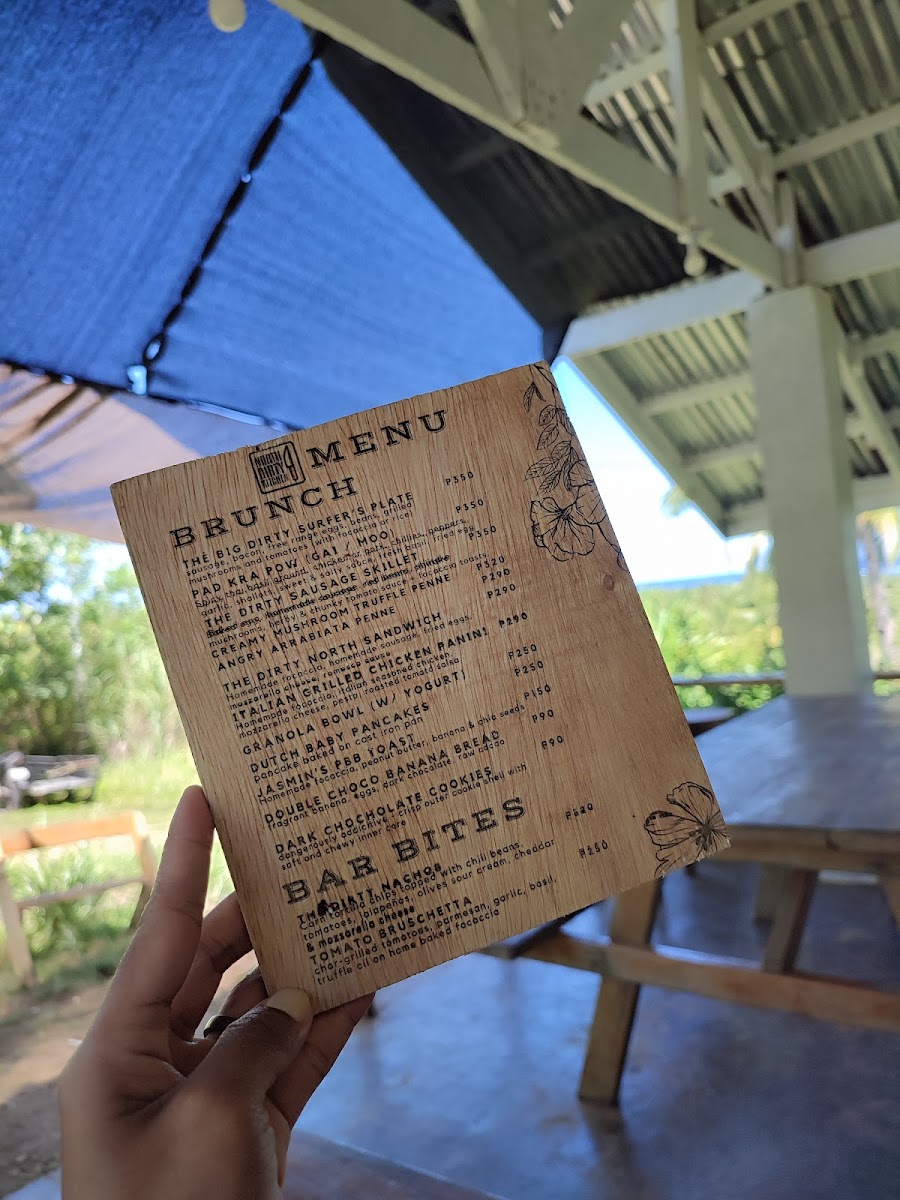 NORTH
DIRTY
KITCHEN
MENU
BRUNCH
THE BIG DIRTY SURFER'S PLATE ₱350
sausage, bacon, free range eggs, beans, grilled
mushrooms and tomatoes with focaccia or rice
PAD KRA POW (GAI / MOO) ₱350
garlic, shallots, sweet & salty sauce, fresh basil, fried egg
THE DIRTY SAUSAGE SKILLET ₱350
mushrooms, hefty & chunky tomato sauce + focaccia toasts
CREAMY MUSHROOM TRUFFLE PENNE ₱320
ANGRY ARRABIATA PENNE ₱290
THE DIRTY NORTH SANDWICH ₱290
Homemade focaccia, homemade sausage, fried eggs,
mozzarella cheese, romesco sauce
ITALIAN GRILLED CHICKEN PANINI ₱290
Homemade focaccia, italian seasoned chicken
mozzarella cheese, pesto, roasted tomato salsa
GRANOLA BOWL (W/ YOGURT) ₱250
DUTCH BABY PANCAKES ₱250
pancake baked on cast iron pan
JASMIN'S PBB TOAST ₱150
Homemade focaccia, peanut butter, banana & chia seeds
DOUBLE CHOCO BANANA BREAD ₱90
fragrant banana, eggs, dark chocolate, raw cacao
DARK CHOCHOLATE COOKIES ₱90
dangerously addictive - crisp outer cookie shell with
soft and chewy inner core
BAR BITES
THE DIRTY NACHOS ₱320
Corn tortilla chips topped with chili beans,
tomatoes, jalapeños, olives sour cream, cheddar
& mozzarella cheese
TOMATO BRUSCHETTA ₱250
char-grilled tomatoes, parmesan, garlic, basil,
truffle oil on home baked focaccia